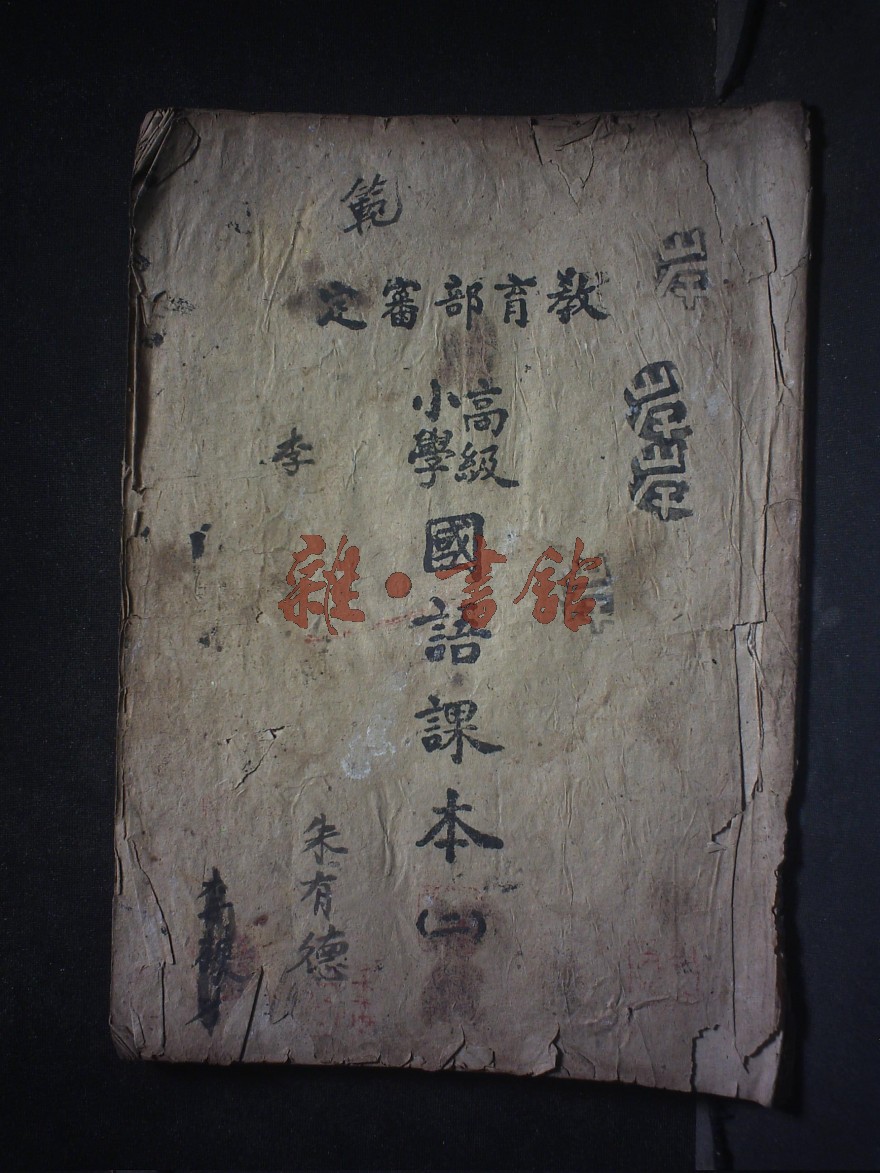 範
教育部審定
高級
小學
國語課本(二)
李
朱有德
雜·書館